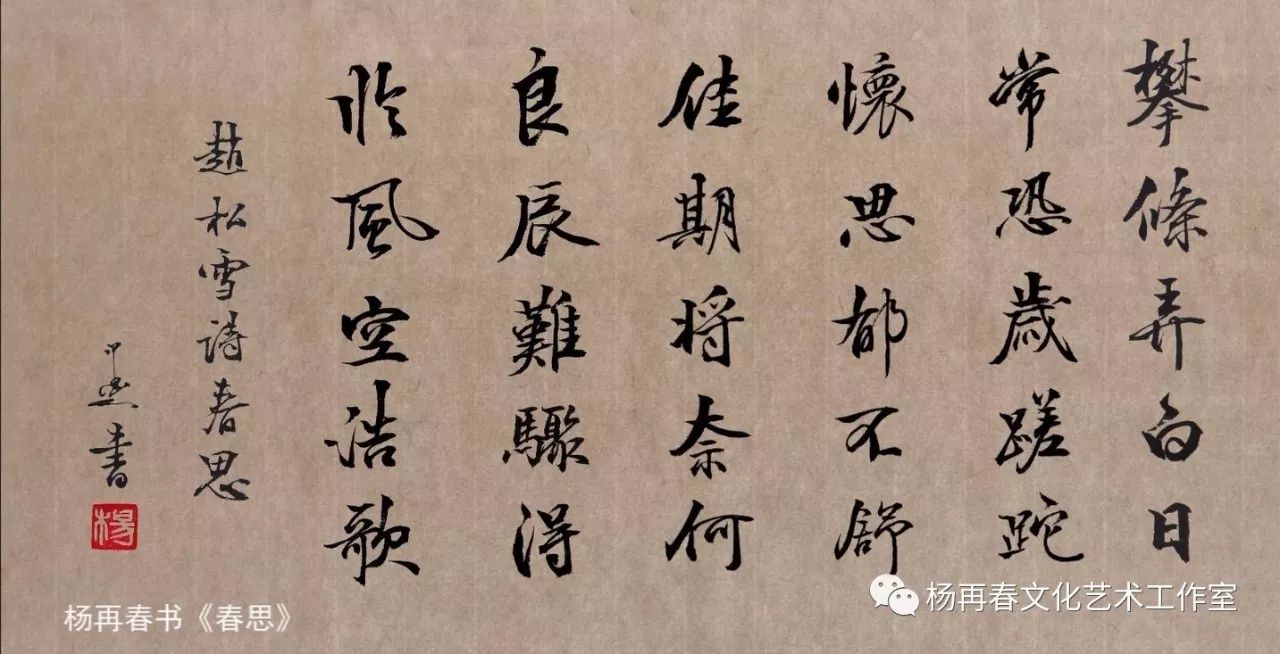 攀條弄白日
常恐歲蹉跎
懷思郁不舒
佳期将奈何
良辰難驟得
臨風空浩歌
趙松雪詩春思
書
楊
杨再春书《春思》
杨再春文化艺术工作室